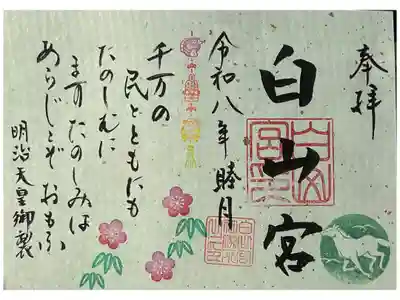 奉拝
白山宮
令和八年睦月
千万の
民とともにも
たのしむに
ますたのしみは
あらじとぞおもふ
明治天皇御製